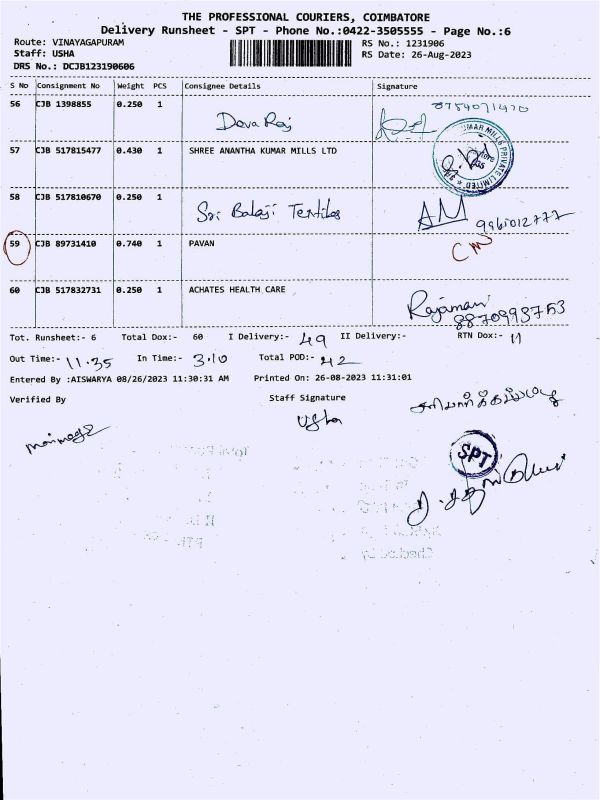 THE PROFESSIONAL COURIERS, COIMBATORE
Delivery Runsheet - SPT - Phone No.:0422-3505555 - Page No.:6
Route: VINAYAGAPURAM RS No.: 1231906
Staff: USHA RS Date: 26-Aug-2023
DRS No.: DCJB123190606
S No Consignment No Weight PCS Consignee Details Signature
56 CJB 1398855 0.250 1 Deva Raj 8754071470
57 CJB 517815477 0.430 1 SHREE ANANTHA KUMAR MILLS LTD
KUMAR MILLS PRIVATE LIMITED
58 CJB 517810670 0.250 1 Sri Balaji Textiles AM
9961012777
59 CJB 89731410 0.740 1 PAVAN CM
60 CJB 517832731 0.250 1 ACHATES HEALTH CARE Rajamani
8870993753
Tot. Runsheet:- 6 Total Dox:- 60 I Delivery:- 49 II Delivery:- RTN Dox:- 11
Out Time:- 11.35 In Time:- 3.10 Total POD:- 42
Entered By :AISWARYA 08/26/2023 11:30:31 AM Printed On: 26-08-2023 11:31:01
Verified By Staff Signature
Usha
SPT